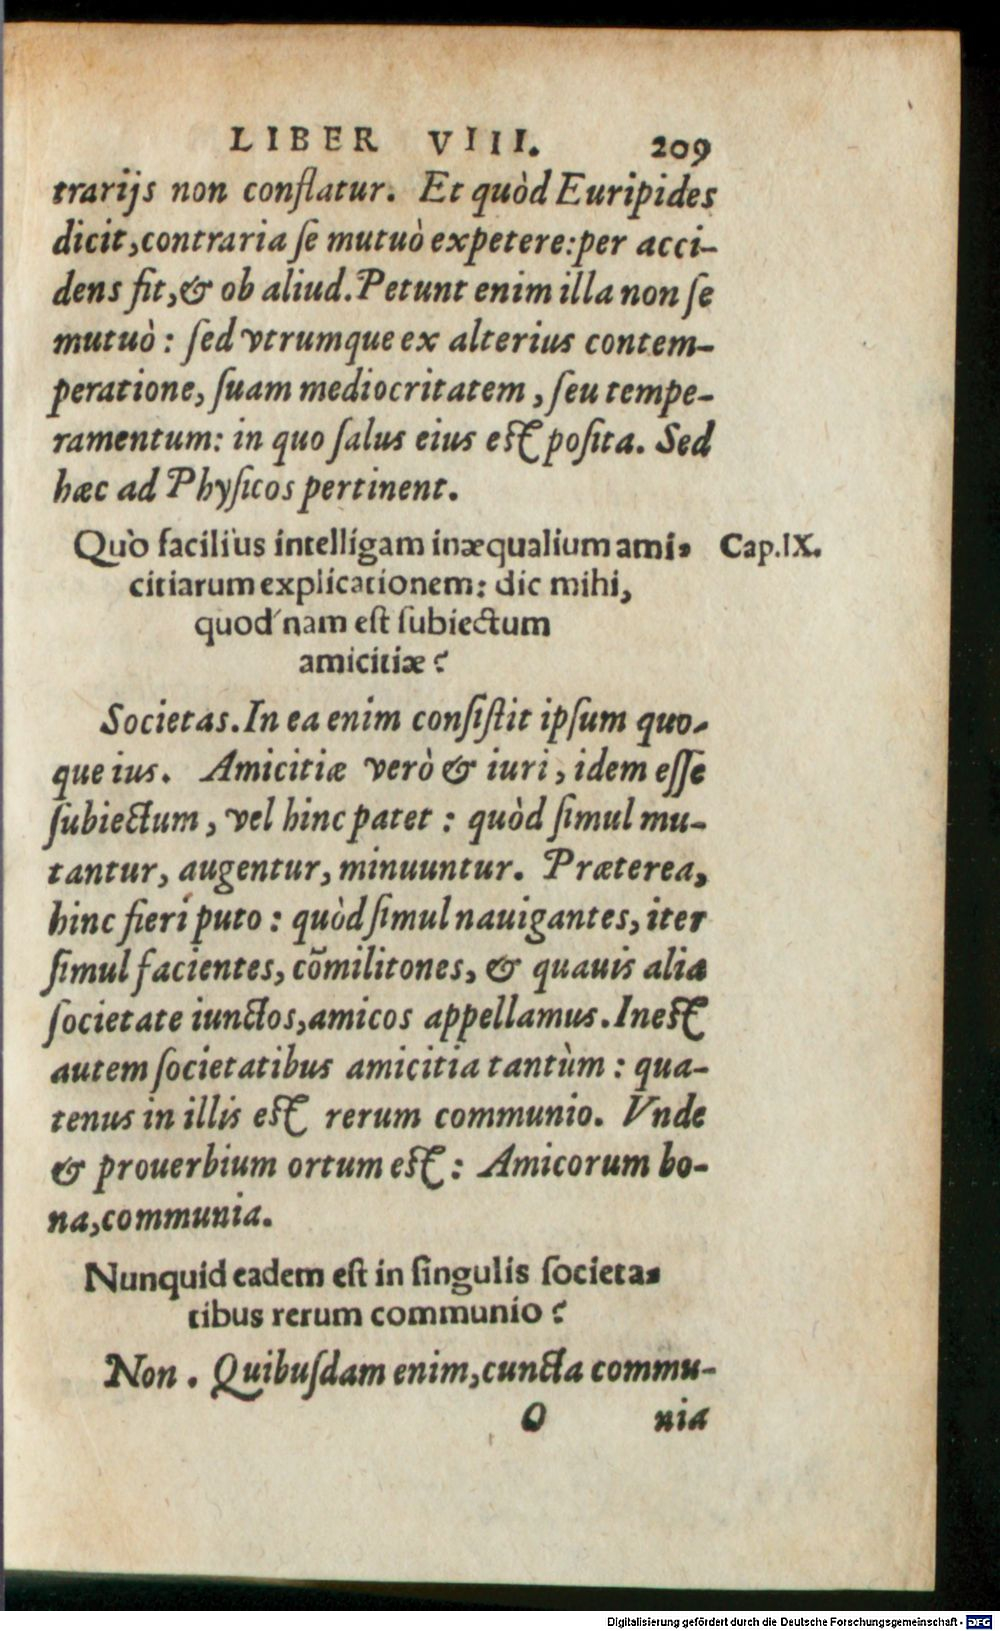 LIBER VIII. 209
trarijs non conflatur. Et quòd Euripides
dicit, contraria se mutuò expetere: per acci-
dens fit, & ob aliud. Petunt enim illa non se
mutuò: sed vtrumque ex alterius contem-
peratione, suam mediocritatem, seu tempe-
ramentum: in quo salus eius est posita. Sed
hæc ad Physicos pertinent.
Quò faciliùs intelligam inæqualium ami- Cap. IX.
citiarum explicationem: dic mihi,
quod nam est subiectum
amicitiæ?
Societas. In ea enim consistit ipsum quo-
que ius. Amicitiæ verò & iuri, idem esse
subiectum, vel hinc patet: quòd simul mu-
tantur, augentur, minuuntur. Præterea,
hinc fieri puto: quòd simul nauigantes, iter
simul facientes, cõmilitones, & quauis alia
societate iunctos, amicos appellamus. Inest
autem societatibus amicitia tantùm: qua-
tenus in illis est rerum communio. Vnde
& prouerbium ortum est: Amicorum bo-
na, communia.
Nunquid eadem est in singulis societa-
tibus rerum communio?
Non. Quibusdam enim, cuncta commu-
O nia
Digitalisierung gefördert durch die Deutsche Forschungsgemeinschaft - DFG